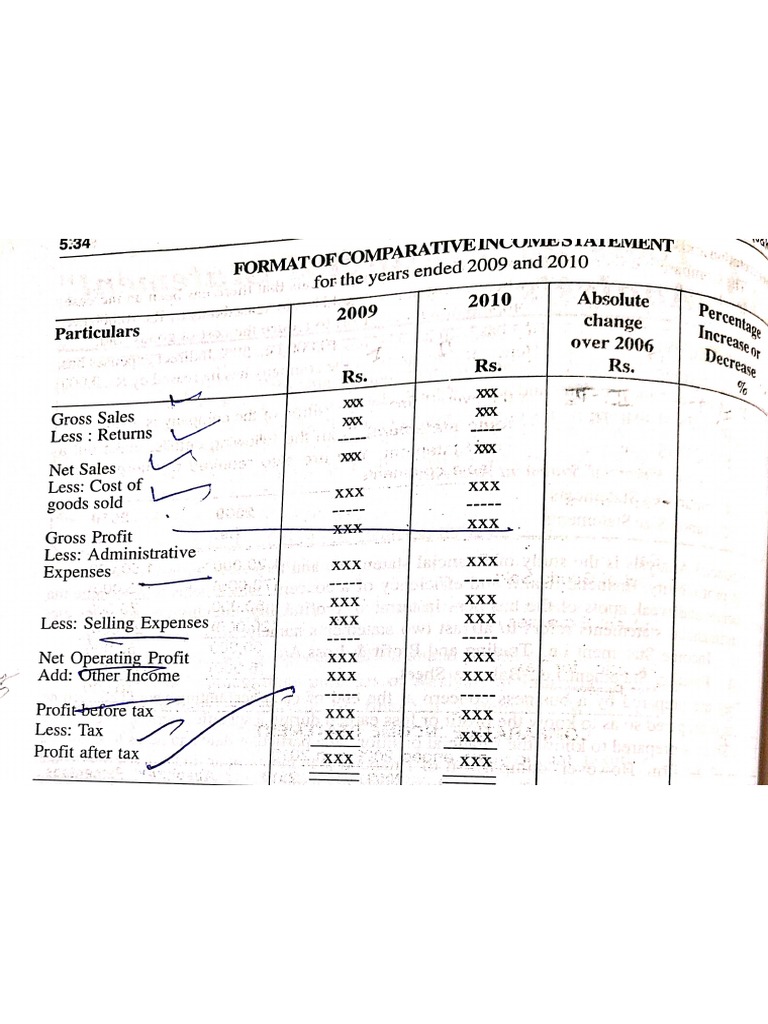 5.34
FORMAT OF COMPARATIVE INCOME STATEMENT
for the years ended 2009 and 2010
Particulars 2009 2010 Absolute change over 2006 Percentage Increase or Decrease
Rs. Rs. Rs. %
Gross Sales xxx xxx
Less : Returns xxx xxx
----- -----
Net Sales xxx xxx
Less: Cost of
goods sold xxx xxx
----- -----
Gross Profit xxx xxx
Less: Administrative
Expenses xxx xxx
----- -----
xxx xxx
Less: Selling Expenses xxx xxx
----- -----
Net Operating Profit xxx xxx
Add: Other Income xxx xxx
----- -----
Profit before tax xxx xxx
Less: Tax xxx xxx
Profit after tax xxx xxx